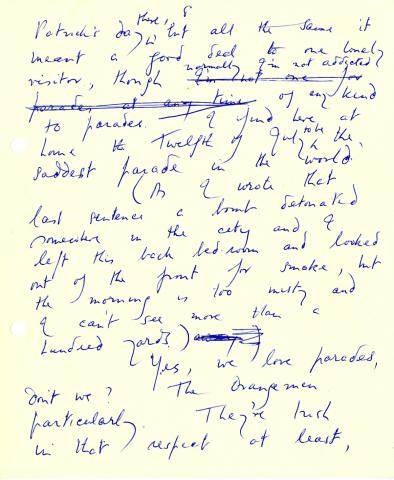 Patrick's day there, & but all the same it
meant a good deal to one lonely
visitor, though normally I'm not addicted
I'm not one for
parades at any time of any kind
to parades. I find here at
home the Twelfth of July to be the
saddest parade in the world.
(As I wrote that
last sentence a bomb detonated
somewhere in the city and I
left this back bed-room and looked
out of the front for smoke, but
the morning is too misty and
I can't see more than a
hundred yards.)
Yes, we love parades,
don't we? The Orangemen
particularly. They're Irish
in that respect at least,